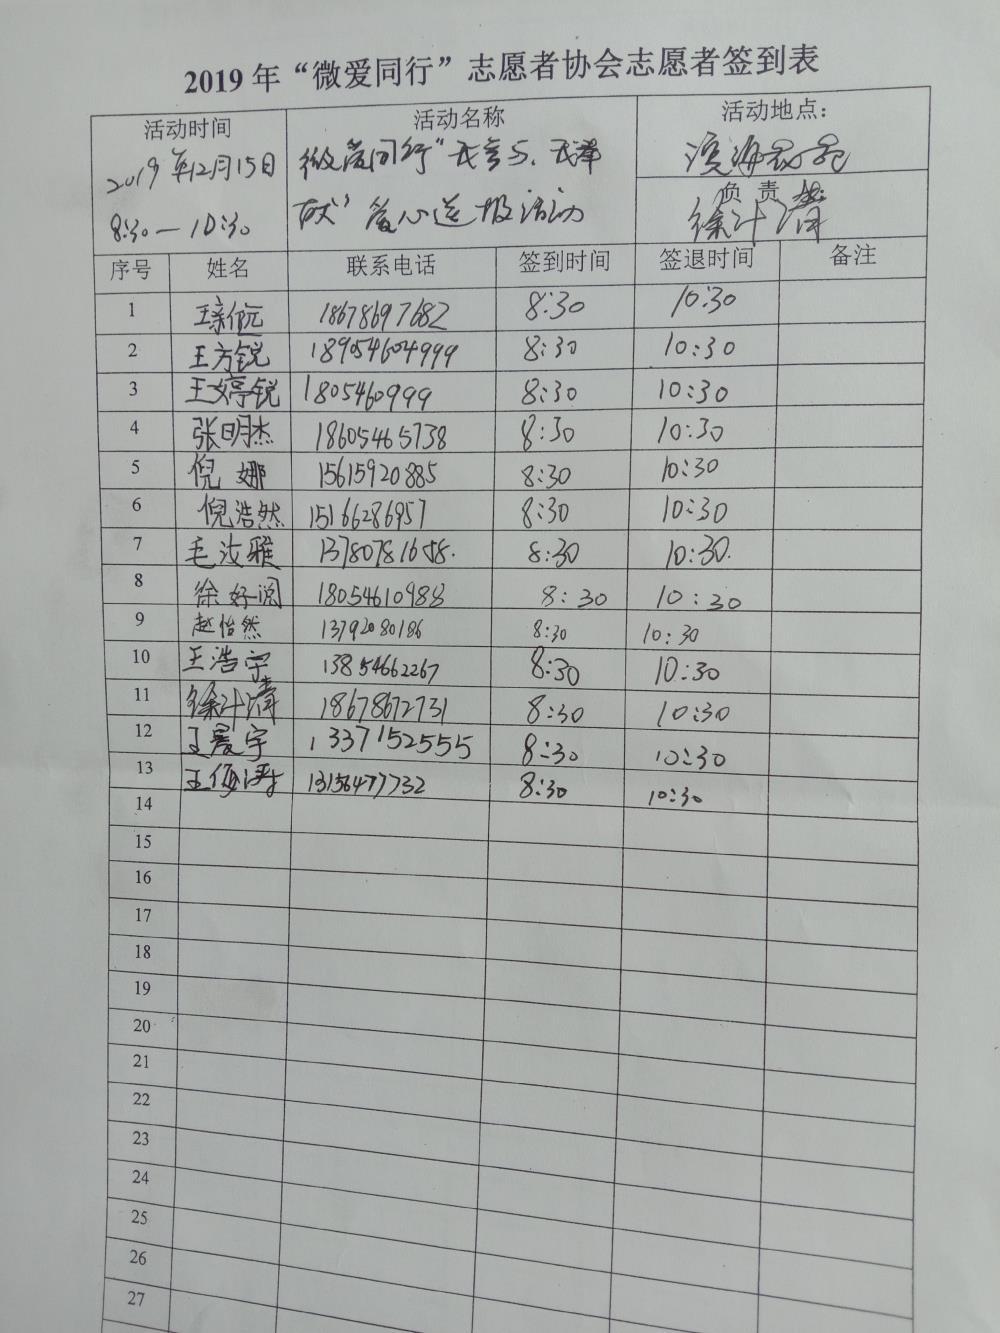 2019 年“微爱同行”志愿者协会志愿者签到表
活动时间 活动名称 活动地点:
2019年12月15日
8:30—10:30
微爱同行“我参与、我奉
献”爱心送报活动
负责
徐汁清
序号 姓名 联系电话 签到时间 签退时间 备注
1 18678697682 8:30 10:30
2 王方锐 189054604999 8:30 10:30
3 王婷锐 1805460999 8:30 10:30
4 张明杰 18605465738 8:30 10:30
5 倪娜 15615920885 8:30 10:30
6 倪浩然 15166286957 8:30 10:30
7 毛汝雅 8:30 10:30.
8 徐好阅 18054610988 8:30 10:30
9 赵怡然 13792080186 8:30 10:30
10 王浩宇 13854662267 8:30 10:30
11 徐汁清 18678672731 8:30 10:30
12 13371152555 8:30 10:30
13 13156477732 8:30 10:30
14
15
16
17
18
19
20
21
22
23
24
25
26
27